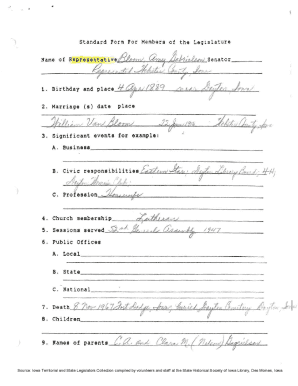 Standard Form For Members of the Legislature
Name of Representative Bloom, Amy Gabrielson Senator
Represented Webster County, Iowa
1. Birthday and place 4 Apr 1889 near Dayton, Iowa
2. Marriage (s) date place
William Van Bloom 25 June Webster County, Iowa
3. Significant events for example:
A. Business
B. Civic responsibilities Eastern Star, Dayton Library Board, 4-H,
Club
C. Profession Housewife
4. Church membership Lutheran
5. Sessions served 52nd General Assembly 1947
6. Public Offices
A. Local
B. State
C. National
7. Death 8 Nov 1967 Fort Dodge, Iowa, buried Dayton Cemetery Dayton
8. Children
9. Names of parents C.A. and Clara M. (Nelson) Gabrielson
Source: Iowa Territorial and State Legislators Collection compiled by volunteers and staff at the State Historical Society of Iowa Library, Des Moines, Iowa.